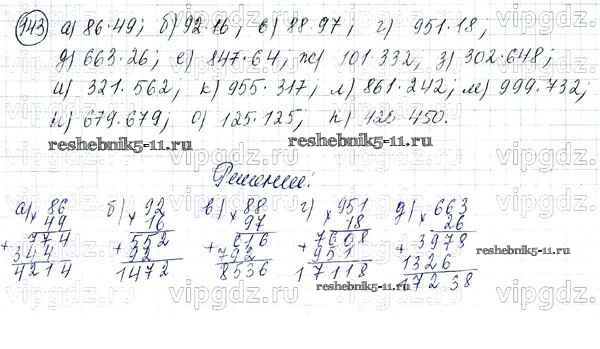 943 а) 86·49; б) 92·16; в) 88·97; г) 951·18;
д) 663·26; е) 847·64; ж) 101·332; з) 302·648;
и) 321·562; к) 955·317; л) 861·242; м) 999·732;
н) 679·679; о) 125·125; п) 120·450.
reshebnik5-11.ru reshebnik5-11.ru
Решение:
а) × 86 б) × 92 в) × 88 г) × 951 д) × 663
49 16 97 18 26
+ 774 + 552 + 616 + 7608 + 3978
344 92 792 951 1326
4214 1472 8536 17118 17238
reshebnik5-11.ru
reshebnik5-11.ru
vipgdz.ru